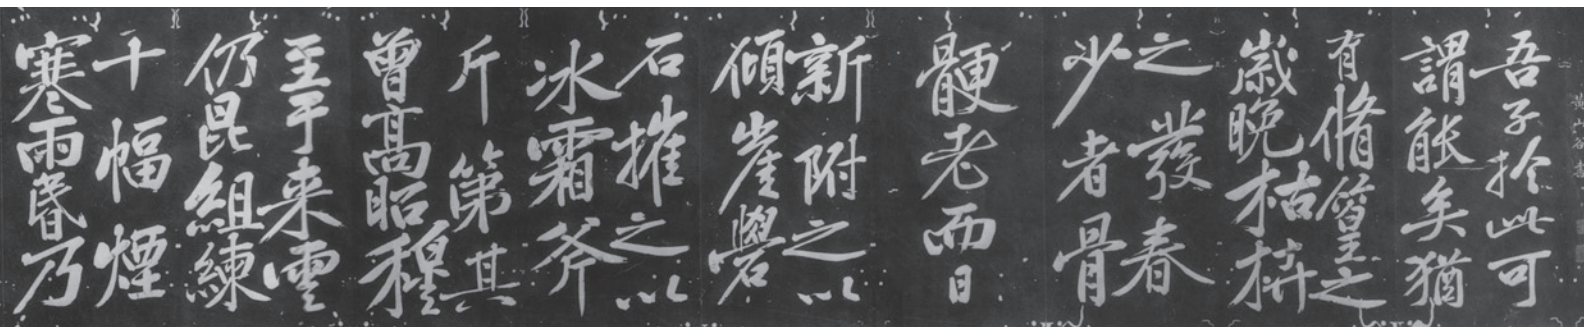 吾子扵此可
謂能矣猶
有脩篁之
歲晚枯枿
之發春
少者骨
骾老而日
新附之以
傾崖礐
石摧之以
冰霜斧
斤第其
曾高昭穆
至于来雲
仍昆組練
十幅煙
寒雨昬乃